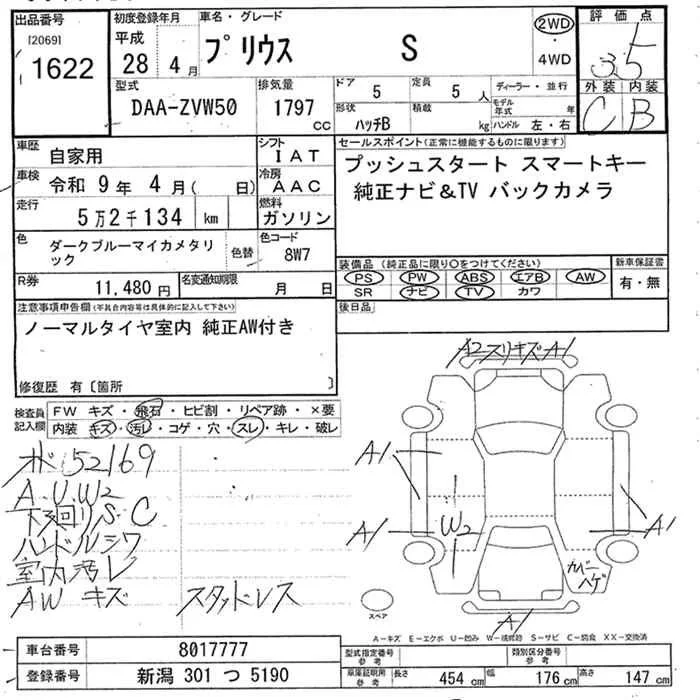 出品番号
[2069]
1622
初度登録年月
平成
28 年 4 月
車名・グレード
プリウス S
2WD
・
4WD
評価点
3.5
外装 内装
C B
型式
DAA-ZVW50
排気量
1797
CC
ドア
5
定員
5 人
形状
ハッチB
積載
kg
ディーラー・並行
モデル年式 年
ハンドル 左・右
車歴
自家用
シフト
IAT
車検
令和 9 年 4 月 ( 日)
冷房
AAC
走行
5万2千134 km
燃料
ガソリン
色
ダークブルーマイカメタリック
色替
色コード
8W7
R券
11,480 円
名変通知期限
月 日
セールスポイント(正常に機能するものに限ります)
プッシュスタート スマートキー
純正ナビ&TV バックカメラ
装備品 (純正品に限り〇をつけてください)
PS PW ABS エアB AW
SR ナビ TV カワ
新車保証書
有・無
後日品
注意事項申告欄(不具合内容等は具体的に記入して下さい)
ノーマルタイヤ室内 純正AW付き
修復歴 有〔箇所 〕
検査員
記入欄
FW キズ・飛石・ヒビ割・リペア跡・×要
内装 キズ・汚レ・コゲ・穴・スレ・キレ・破レ
オド:52169
A.U.W2
下廻り S.C
ハンドルシワ
室内汚レ
AW キズ
スタッドレス
A2 スリキズ A1
A1
A1
W2
A1
カバーハゲ
A1
スペア
A-キズ E-エクボ U-凹み W-補修跡 S-サビ C-腐食 XX-交換済
車台番号
8017777
登録番号
新潟 301 つ 5190
型式指定番号
参考
類別区分番号
参考
車庫証明用
参考
長さ 454 cm 幅 176 cm 高さ 147 cm